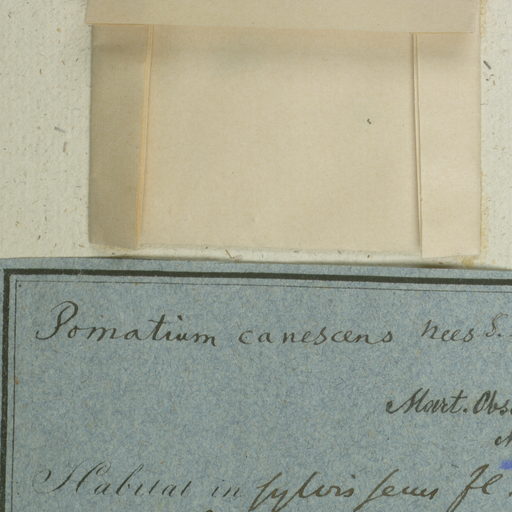 Pomatium canescens Nees S.
Mart. Obs.
Habitat in sylvis